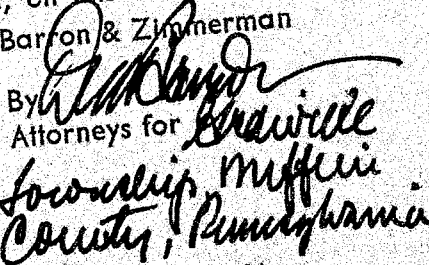 Barron & Zimmerman
By
Attorneys for Granville
Township, Mifflin
County, Pennsylvania